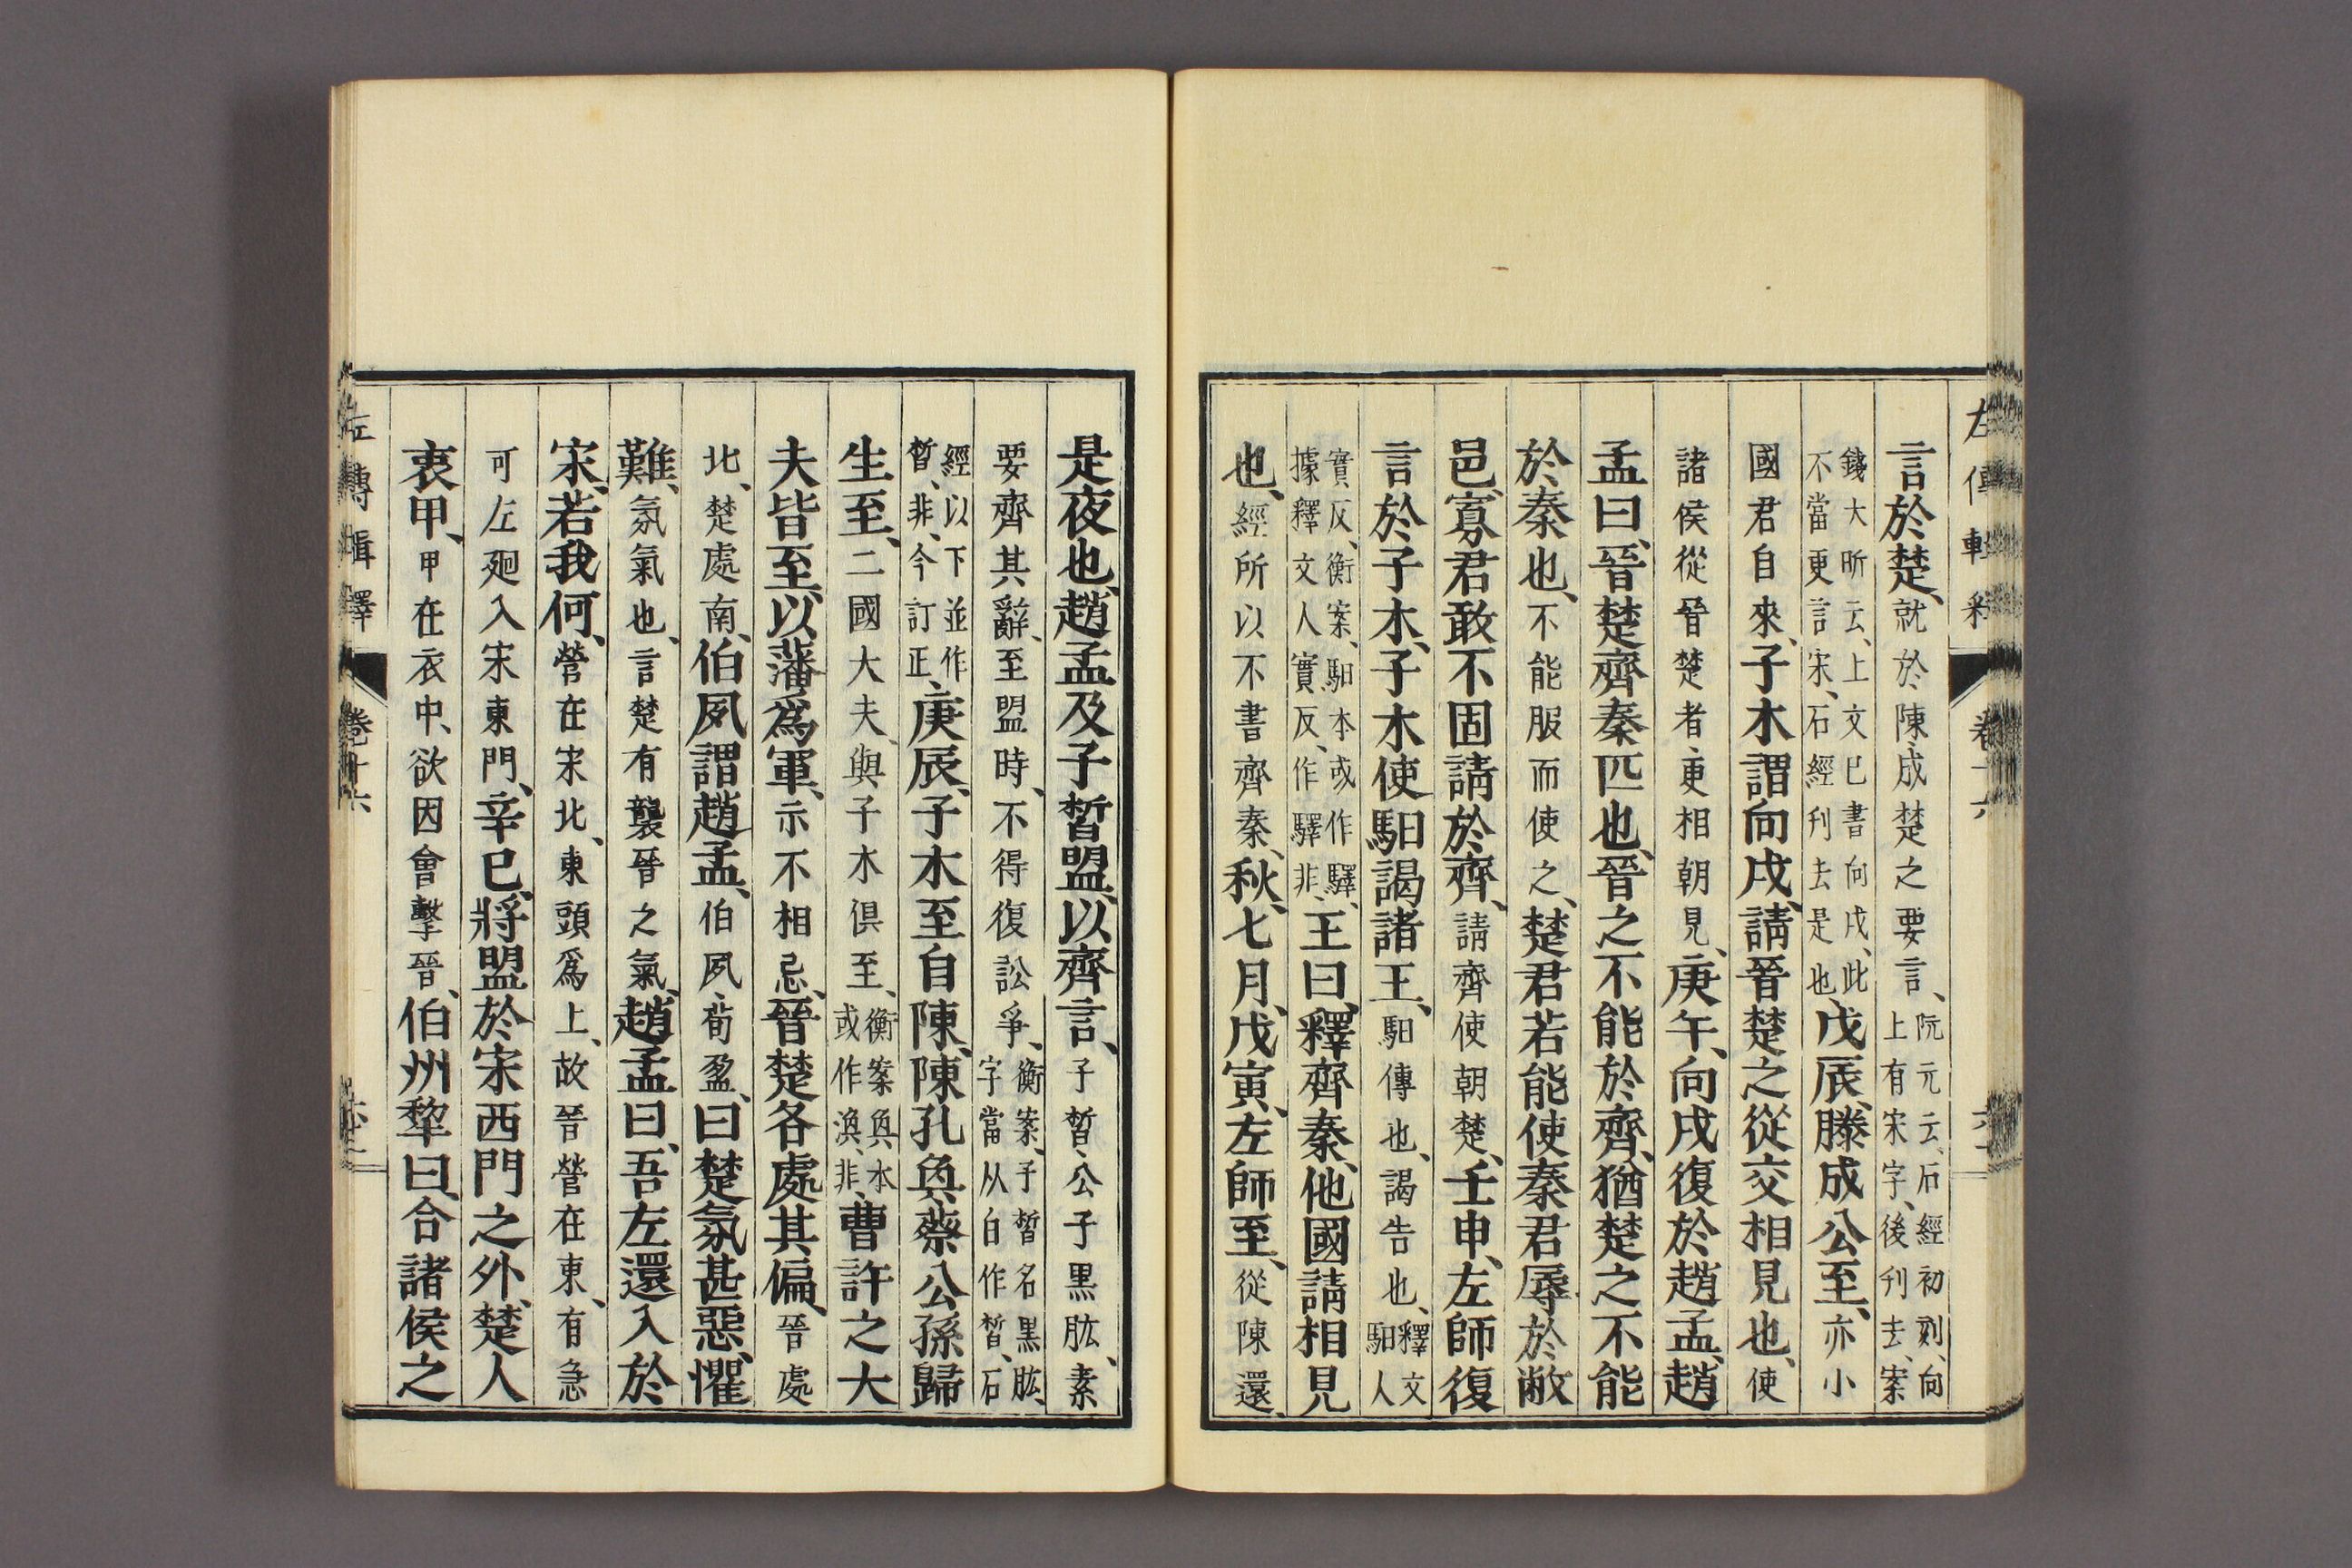 言於楚、就於陳、成楚之要言、阮元云、石經初刻、向上有宋字、後刋去、案
錢大昕云、上文已書向戌、此不當更言宋、石經刋去是也、戊辰、滕成公至、亦小
國君自來、子木謂向戌、請晉楚之從交相見也、使
諸侯從晉楚者更相朝見、庚午、向戌復於趙孟、趙
孟曰、晉楚齊秦匹也、晉之不能於齊、猶楚之不能
於秦也、不能服而使之、楚君若能使秦君辱於敝
邑、寡君敢不固請於齊、請齊使朝楚、壬申、左師復
言於子木、子木使馹謁諸王、馹傳也、謁告也、釋文馹人
實反、衡案、馹本或作驛、據釋文人實反、作驛非、王曰、釋齊秦、他國請相見
也、經所以不書齊秦、秋、七月、戊寅、左師至、從陳還、
是夜也、趙孟及子晳盟、以齊言、子晳、公子黑肱、素
要齊其辭、至盟時、不得復訟爭、衡案、子晳名黑肱、字當从白作皙、石
經以下並作晳、非、今訂正、庚辰、子木至自陳、陳孔奐蔡公孫歸
生至、二國大夫、與子木俱至、衡案奐本或作渙、非、曹許之大
夫皆至、以藩爲軍、示不相忌、晉楚各處其偏、晉處
北、楚處南、伯夙謂趙孟、伯夙、荀盈、曰、楚氛甚惡、懼
難、氛氣也、言楚有襲晉之氣、趙孟曰、吾左還入於
宋、若我何、營在宋北、東頭爲上、故晉營在東、有急
可左廻入宋東門、辛巳、將盟於宋西門之外、楚人
衷甲、甲在衣中、欲因會擊晉、伯州犂曰、合諸侯之
左傳輯釋
卷十六